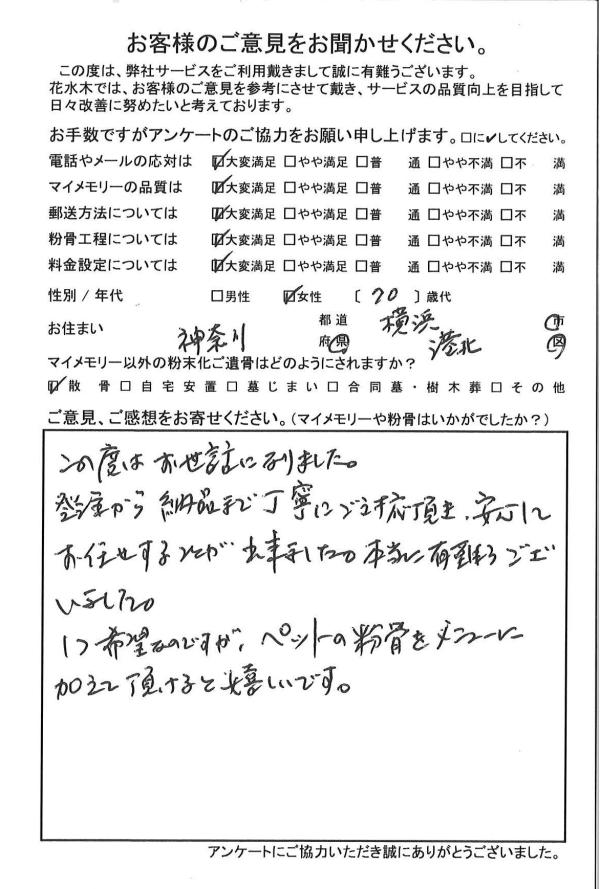 お客様のご意見をお聞かせください。
この度は、弊社サービスをご利用戴きまして誠に有難うございます。
花水木では、お客様のご意見を参考にさせて戴き、サービスの品質向上を目指して
日々改善に努めたいと考えております。
お手数ですがアンケートのご協力をお願い申し上げます。□に✔してください。
電話やメールの応対は ☑大変満足 □やや満足 □普 通 □やや不満 □不 満
マイメモリーの品質は ☑大変満足 □やや満足 □普 通 □やや不満 □不 満
郵送方法については ☑大変満足 □やや満足 □普 通 □やや不満 □不 満
粉骨工程については ☑大変満足 □やや満足 □普 通 □やや不満 □不 満
料金設定については ☑大変満足 □やや満足 □普 通 □やや不満 □不 満
性別 / 年代 □男性 ☑女性 〔 70 〕歳代
お住まい 神奈川 都 道 府 県 横浜 市 港北 区
マイメモリー以外の粉末化ご遺骨はどのようにされますか？
☑散 骨 □自 宅 安 置 □墓 じ ま い □合 同 墓 ・ 樹 木 葬 □そ の 他
ご意見、ご感想をお寄せください。（マイメモリーや粉骨はいかがでしたか？）
この度はお世話になりました。
から 納品まで丁寧にご対応頂き、安心して
お任せすることが出来ました。本当に有難うござ
いました。
1つ希望なのですが、ペットの粉骨をメニューに
加えて頂けると嬉しいです。
アンケートにご協力いただき誠にありがとうございました。